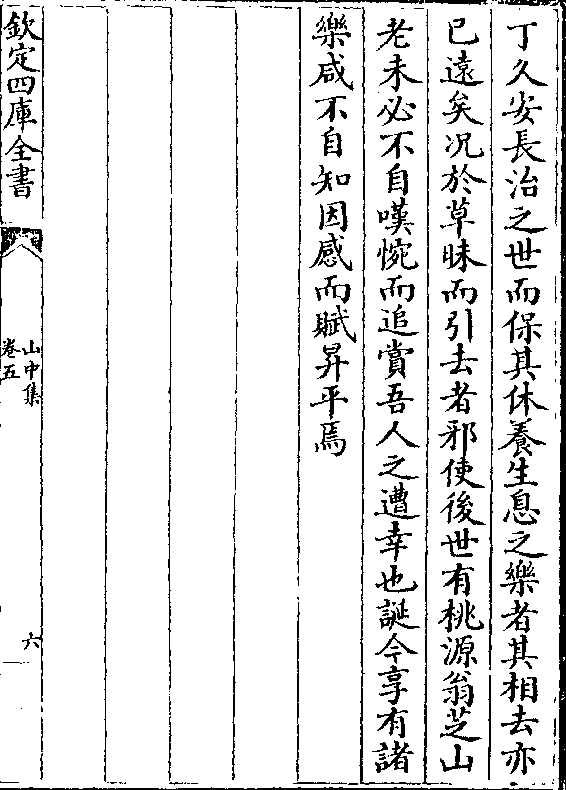 丁久安長治之世而保其休養生息之樂者其相去亦
已遠矣况於草昧而引去者邪使後世有桃源翁芝山
老未必不自嘆惋而追賞吾人之遭幸也誕今享有諸
樂咸不自知因感而賦昇平焉
欽定四庫全書
山中集
卷五
六